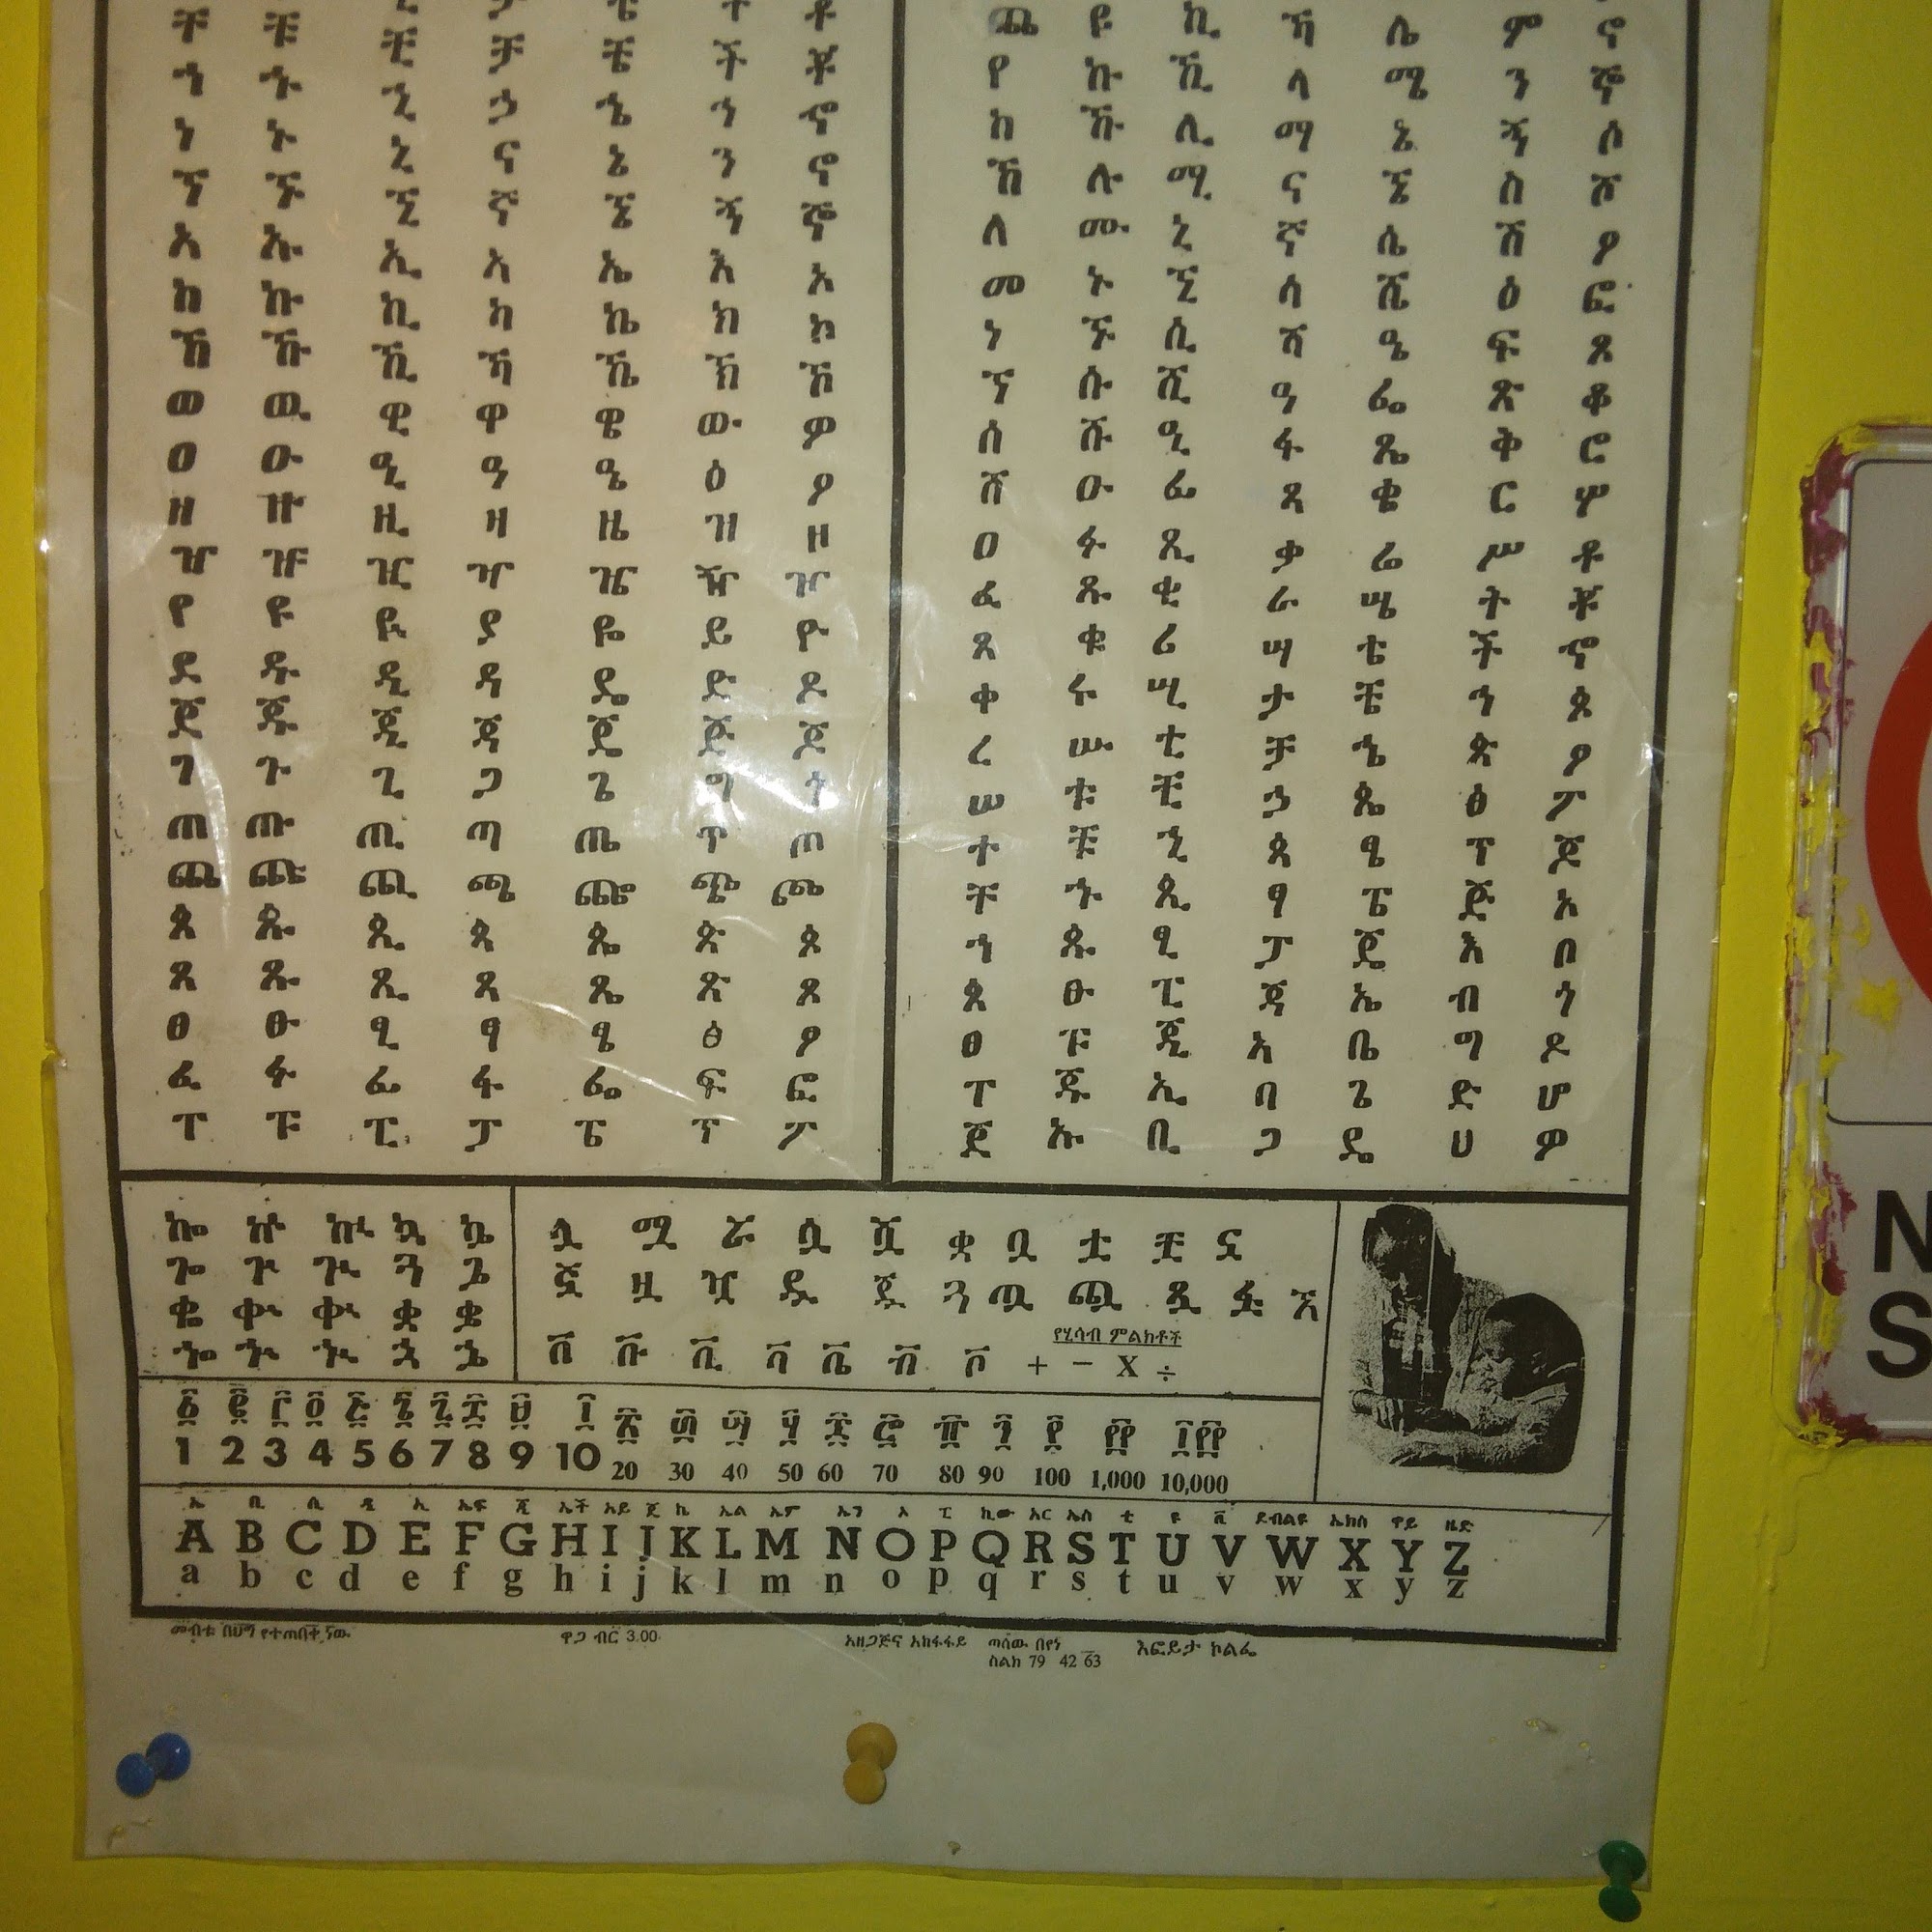 ቸ ቹ ቺ ቻ ቼ ች ቾ
ኀ ኁ ኂ ኃ ኄ ኅ ኆ
ነ ኑ ኒ ና ኔ ን ኖ
ኘ ኙ ኚ ኛ ኜ ኝ ኞ
አ ኡ ኢ ኣ ኤ እ ኦ
ከ ኩ ኪ ካ ኬ ክ ኮ
ኸ ኹ ኺ ኻ ኼ ኽ ኾ
ወ ዉ ዊ ዋ ዌ ው ዎ
ዐ ዑ ዒ ዓ ዔ ዕ ዖ
ዘ ዙ ዚ ዛ ዜ ዝ ዞ
ዠ ዡ ዢ ዣ ዤ ዥ ዦ
የ ዩ ዪ ያ ዬ ይ ዮ
ደ ዱ ዲ ዳ ዴ ድ ዶ
ጀ ጁ ጂ ጃ ጄ ጅ ጆ
ገ ጉ ጊ ጋ ጌ ግ ጎ
ጠ ጡ ጢ ጣ ጤ ጥ ጦ
ጨ ጩ ጪ ጫ ጬ ጭ ጮ
ጰ ጱ ጲ ጳ ጴ ጵ ጶ
ጸ ጹ ጺ ጻ ጼ ጽ ጾ
ፀ ፁ ፂ ፃ ፄ ፅ ፆ
ፈ ፉ ፊ ፋ ፌ ፍ ፎ
ፐ ፑ ፒ ፓ ፔ ፕ ፖ
ጨ ዩ ኪ ኻ ሌ ም ኖ
የ ኩ ኺ ላ ሜ ን ኞ
ከ ኹ ሊ ማ ኔ ኝ ሶ
ኸ ሉ ሚ ና ኜ ስ ሾ
ለ ሙ ኒ ኛ ሴ ሽ ዖ
መ ኑ ኚ ሳ ሼ ዕ ፎ
ነ ኙ ሲ ሻ ዔ ፍ ጾ
ኘ ሱ ሺ ዓ ፌ ጽ ቆ
ሰ ሹ ዒ ፋ ጼ ቅ ሮ
ሸ ዑ ፊ ጻ ቄ ር ሦ
ዐ ፉ ጺ ቃ ሬ ሥ ቶ
ፈ ጹ ቂ ራ ሤ ት ቾ
ጸ ቁ ሪ ሣ ቴ ች ኆ
ቀ ሩ ሢ ታ ቼ ኅ ጶ
ረ ሡ ቲ ቻ ኄ ጵ ፆ
ሠ ቱ ቺ ኃ ጴ ፅ ፖ
ተ ቹ ኂ ጳ ፄ ፕ ጆ
ቸ ኁ ጲ ፃ ፔ ጅ ኦ
ኀ ጱ ፂ ፓ ጄ እ ቦ
ጰ ፁ ፒ ጃ ኤ ብ ጎ
ፀ ፑ ጂ ኣ ቤ ግ ዶ
ፐ ጁ ኢ ባ ጌ ድ ሆ
ጀ ኡ ቢ ጋ ዴ ህ ዎ
ኰ ዀ ኲ ኳ ኴ
ጐ ጒ ጓ ጔ
ቈ ቍ ቊ ቋ ቌ
ኈ ኍ ኊ ኋ ኌ
ሏ ሟ ሯ ሷ ሿ ቋ ቧ ቷ ቿ ኗ
ኟ ዟ ዧ ዷ ጇ ጓ ጧ ጯ ጿ ፏ ኧ
ቨ ቩ ቪ ቫ ቬ ቭ ቮ
የሂሳብ ምልክቶች
+ − X ÷
፩ ፪ ፫ ፬ ፭ ፮ ፯ ፰ ፱ ፲ ፳ ፴ ፵ ፶ ፷ ፸ ፹ ፺ ፻ ፻፻ ፲፻፻
1 2 3 4 5 6 7 8 9 10 20 30 40 50 60 70 80 90 100 1,000 10,000
ኤ ቢ ሲ ዲ ኢ ኤፍ ጂ ኤች አይ ጄ ኬ ኤል ኤም ኤን ኦ ፒ ኪው አር ኤስ ቲ ዩ ቪ ደብልዩ ኤክስ ዋይ ዜድ
A B C D E F G H I J K L M N O P Q R S T U V W X Y Z
a b c d e f g h i j k l m n o p q r s t u v w x y z
መብቱ በህግ የተጠበቀ ነው ዋጋ ብር 3.00 አዘጋጅና አከፋፋይ ጣሰው በየነ እፎይታ ኮልፌ
ስልክ 79 42 63
N
S